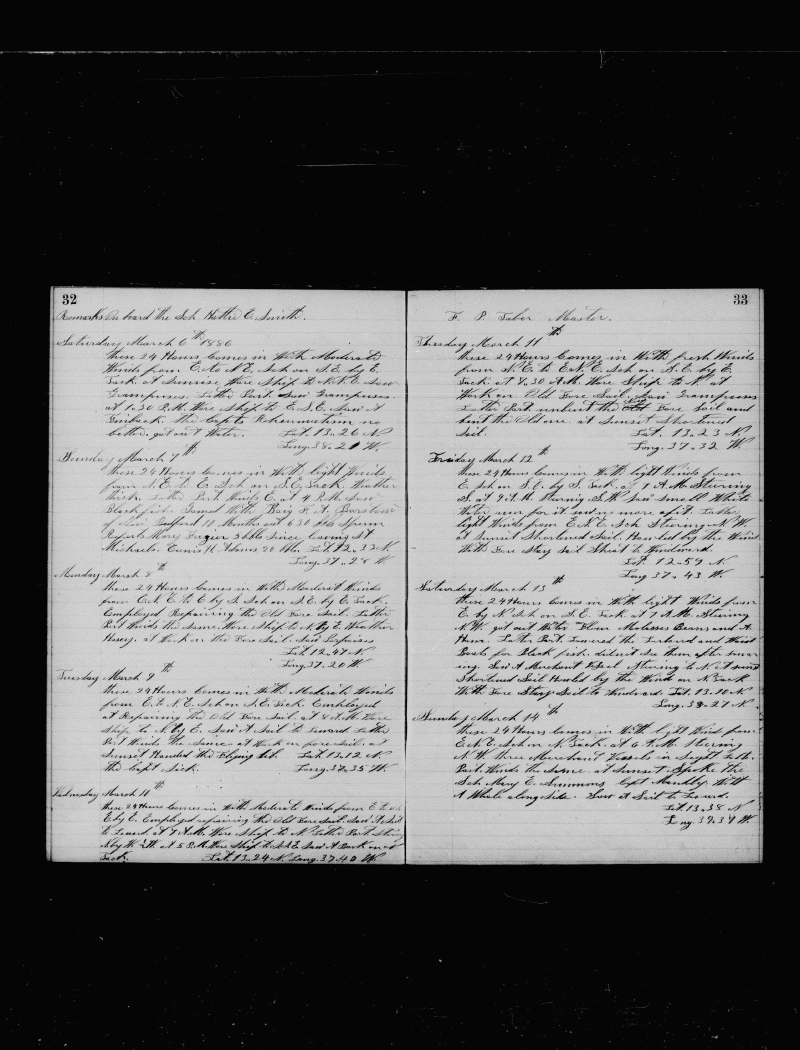 32
Remarks On board the Sch Hattie E. Smith.
Saturday March 6th 1886
these 24 Hours Comes in With Moderate
Winds from E to N E. Sch on S.E. by E.
Tack. at Sunrise Wore Ship to N.N.E. Saw
Grampuses. Latter Part Saw Grampuses.
at 1.30 P.M. Wore Ship to E.S.E. Saw A
Finback. The Capts Rheumatism no
better. got out Water. Lat. 13.26 N
Long. 38.21 W
Sunday March 7th
these 24 Hours Comes in With light Winds
from N.E. to E Sch on S.E. Tack. Weather
thick. Latter Part Winds E. at 4 P.M. Saw
Blackfish. Gamed With Brig F. A. Barstow
of New Bedford 18 Months out 630 bbls Sperm
Reports Mary Frazier 5 bbls Since Leaving St
Michaels. Lat. 12.33 N
Long. 37.28 W
Monday March 8th
these 24 Hours Comes in With Moderat Winds
from E to E by S. Sch on S.E. by E. Tack.
Employed Repairing the Old Fore Sail. Latter
Part Winds the Same. Wore Ship to N by E. Weather
Hasey. at Work on the Fore Sail. Saw Porpoises
Lat. 12.47 N
Long. 37.20 W
Tuesday March 9th
these 24 Hours Comes in With Moderate Winds
from E. to N.E. Sch on S.E. Tack. Employed
at Repairing the Old Fore Sail. at 8 A.M. Wore
Ship to N. by E. Saw A Sail to Leward. Latter
Part Winds the Same. at Work on fore Sail. at
Sunset Hauled the Flying Jib. Lat. 13.12 N
the Capt Sick. Long. 37.35 W
Wednesday March 10th
these 24 Hours Comes in With Moderate Winds from E to
E by E. Employed repairing the Old Fore Sail. Saw A Sail
to Leward. at 7 A.M. Wore Ship to N Latter Part Stering
N by W at 5 P.M. Wore Ship to S.S.E. Saw A Bark on
Tack. Lat. 13.24 N. Long. 37.40 W
33
F. P. Taber Master.
Thursday March 11th
these 24 Hours Comes in With fresh Winds
from N.E. to E.N.E. Sch on S.E. by E.
Tack. at 7.30 A.M. Wore Ship to N. at
Work on Old Fore Sail. Saw Grampuses
Latter Part. unbent the New Fore Sail and
bent the Old one. at Sunset Shortened
Sail. Lat. 13.23 N
Long. 37.32 W
Friday March 12th
these 24 Hours Comes in With light Winds from
E. Sch on S.E. by S. Tack. at 7 A.M. Stering
S. at 9 A.M. Stering S.W. Saw Small White
Water run for it and no more of it. Latter
light Winds from E.N.E. Sch Stering N.W.
at Sunset Shortened Sail. Hauled by the Wind
With Fore Stay Sail Sheat to Windward.
Lat. 12.59 N
Long 37.43 W.
Saturday March 13th
these 24 Hours Comes in With light Winds from
E. by N. Sch on S.E. Tack at 7 A.M. Stering
N.W. got out Water Flour Molasses Beans and A
Ham. Latter Part Lowered the Larbord and Waist
Boats for Black fish. did not See them after
Saw A Merchant Vessel Stering to N. at Sunset
Shortened Sail Hauled by the Wind on N Tack
With Fore Stay Sail to Windward. Lat. 13.10 N
Long. 38.27 W
Sunday March 14th
these 24 Hours comes in With light Winds from
E.N.E. Sch on N. Tack. at 6 A.M. Stering
N.W. three Merchant Vessels in Sight. Latter
Part Winds the Same. at Sunset Spoke the
Sch Mary E. Simmons Capt Mandly. With
A Whale along Side. Saw A Sail to Leward.
Lat. 13.38 N
Long 39.39 W.